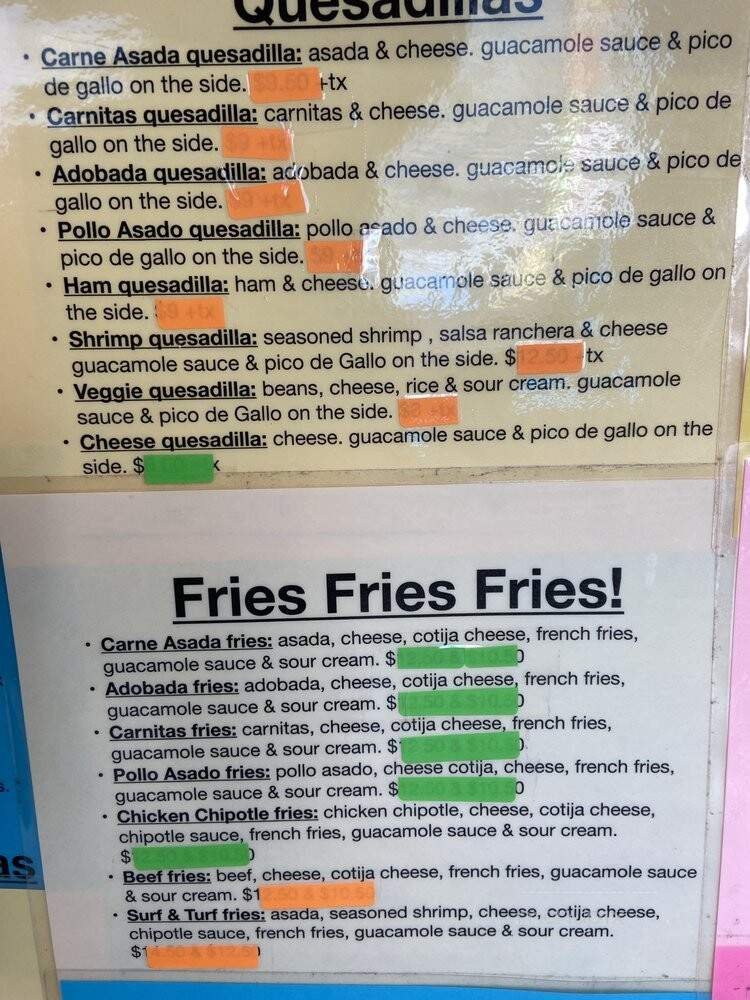 Quesadillas
• Carne Asada quesadilla: asada & cheese. guacamole sauce & pico
de gallo on the side. $9.50 +tx
• Carnitas quesadilla: carnitas & cheese. guacamole sauce & pico de
gallo on the side. $9 +tx
• Adobada quesadilla: adobada & cheese. guacamole sauce & pico de
gallo on the side. 9 +tx
• Pollo Asado quesadilla: pollo asado & cheese. guacamole sauce &
pico de gallo on the side. $9
• Ham quesadilla: ham & cheese. guacamole sauce & pico de gallo on
the side. $9 +tx
• Shrimp quesadilla: seasoned shrimp , salsa ranchera & cheese
guacamole sauce & pico de Gallo on the side. $12.50 +tx
• Veggie quesadilla: beans, cheese, rice & sour cream. guacamole
sauce & pico de Gallo on the side. +tx
• Cheese quesadilla: cheese. guacamole sauce & pico de gallo on the
side. $ x
Fries Fries Fries!
• Carne Asada fries: asada, cheese, cotija cheese, french fries,
guacamole sauce & sour cream. $12.50 & $10.50
• Adobada fries: adobada, cheese, cotija cheese, french fries,
guacamole sauce & sour cream. $12.50 & $10.50
• Carnitas fries: carnitas, cheese, cotija cheese, french fries,
guacamole sauce & sour cream. $12.50 & $10.50
• Pollo Asado fries: pollo asado, cheese cotija, cheese, french fries,
guacamole sauce & sour cream. $12.50 & $10.50
• Chicken Chipotle fries: chicken chipotle, cheese, cotija cheese,
chipotle sauce, french fries, guacamole sauce & sour cream.
$
• Beef fries: beef, cheese, cotija cheese, french fries, guacamole sauce
& sour cream. $12.50 & $10.50
• Surf & Turf fries: asada, seasoned shrimp, cheese, cotija cheese,
chipotle sauce, french fries, guacamole sauce & sour cream.
$14.50 & $12.50
as
s.